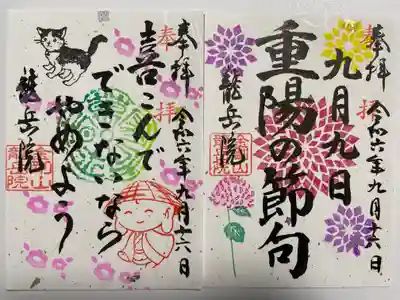 奉拝
奉拝
令和六年九月十六日
九月九日
重陽の節句
龍岳院
奉拝
奉拝
令和六年九月十六日
喜こんで
できないなら
やめよう
龍岳院